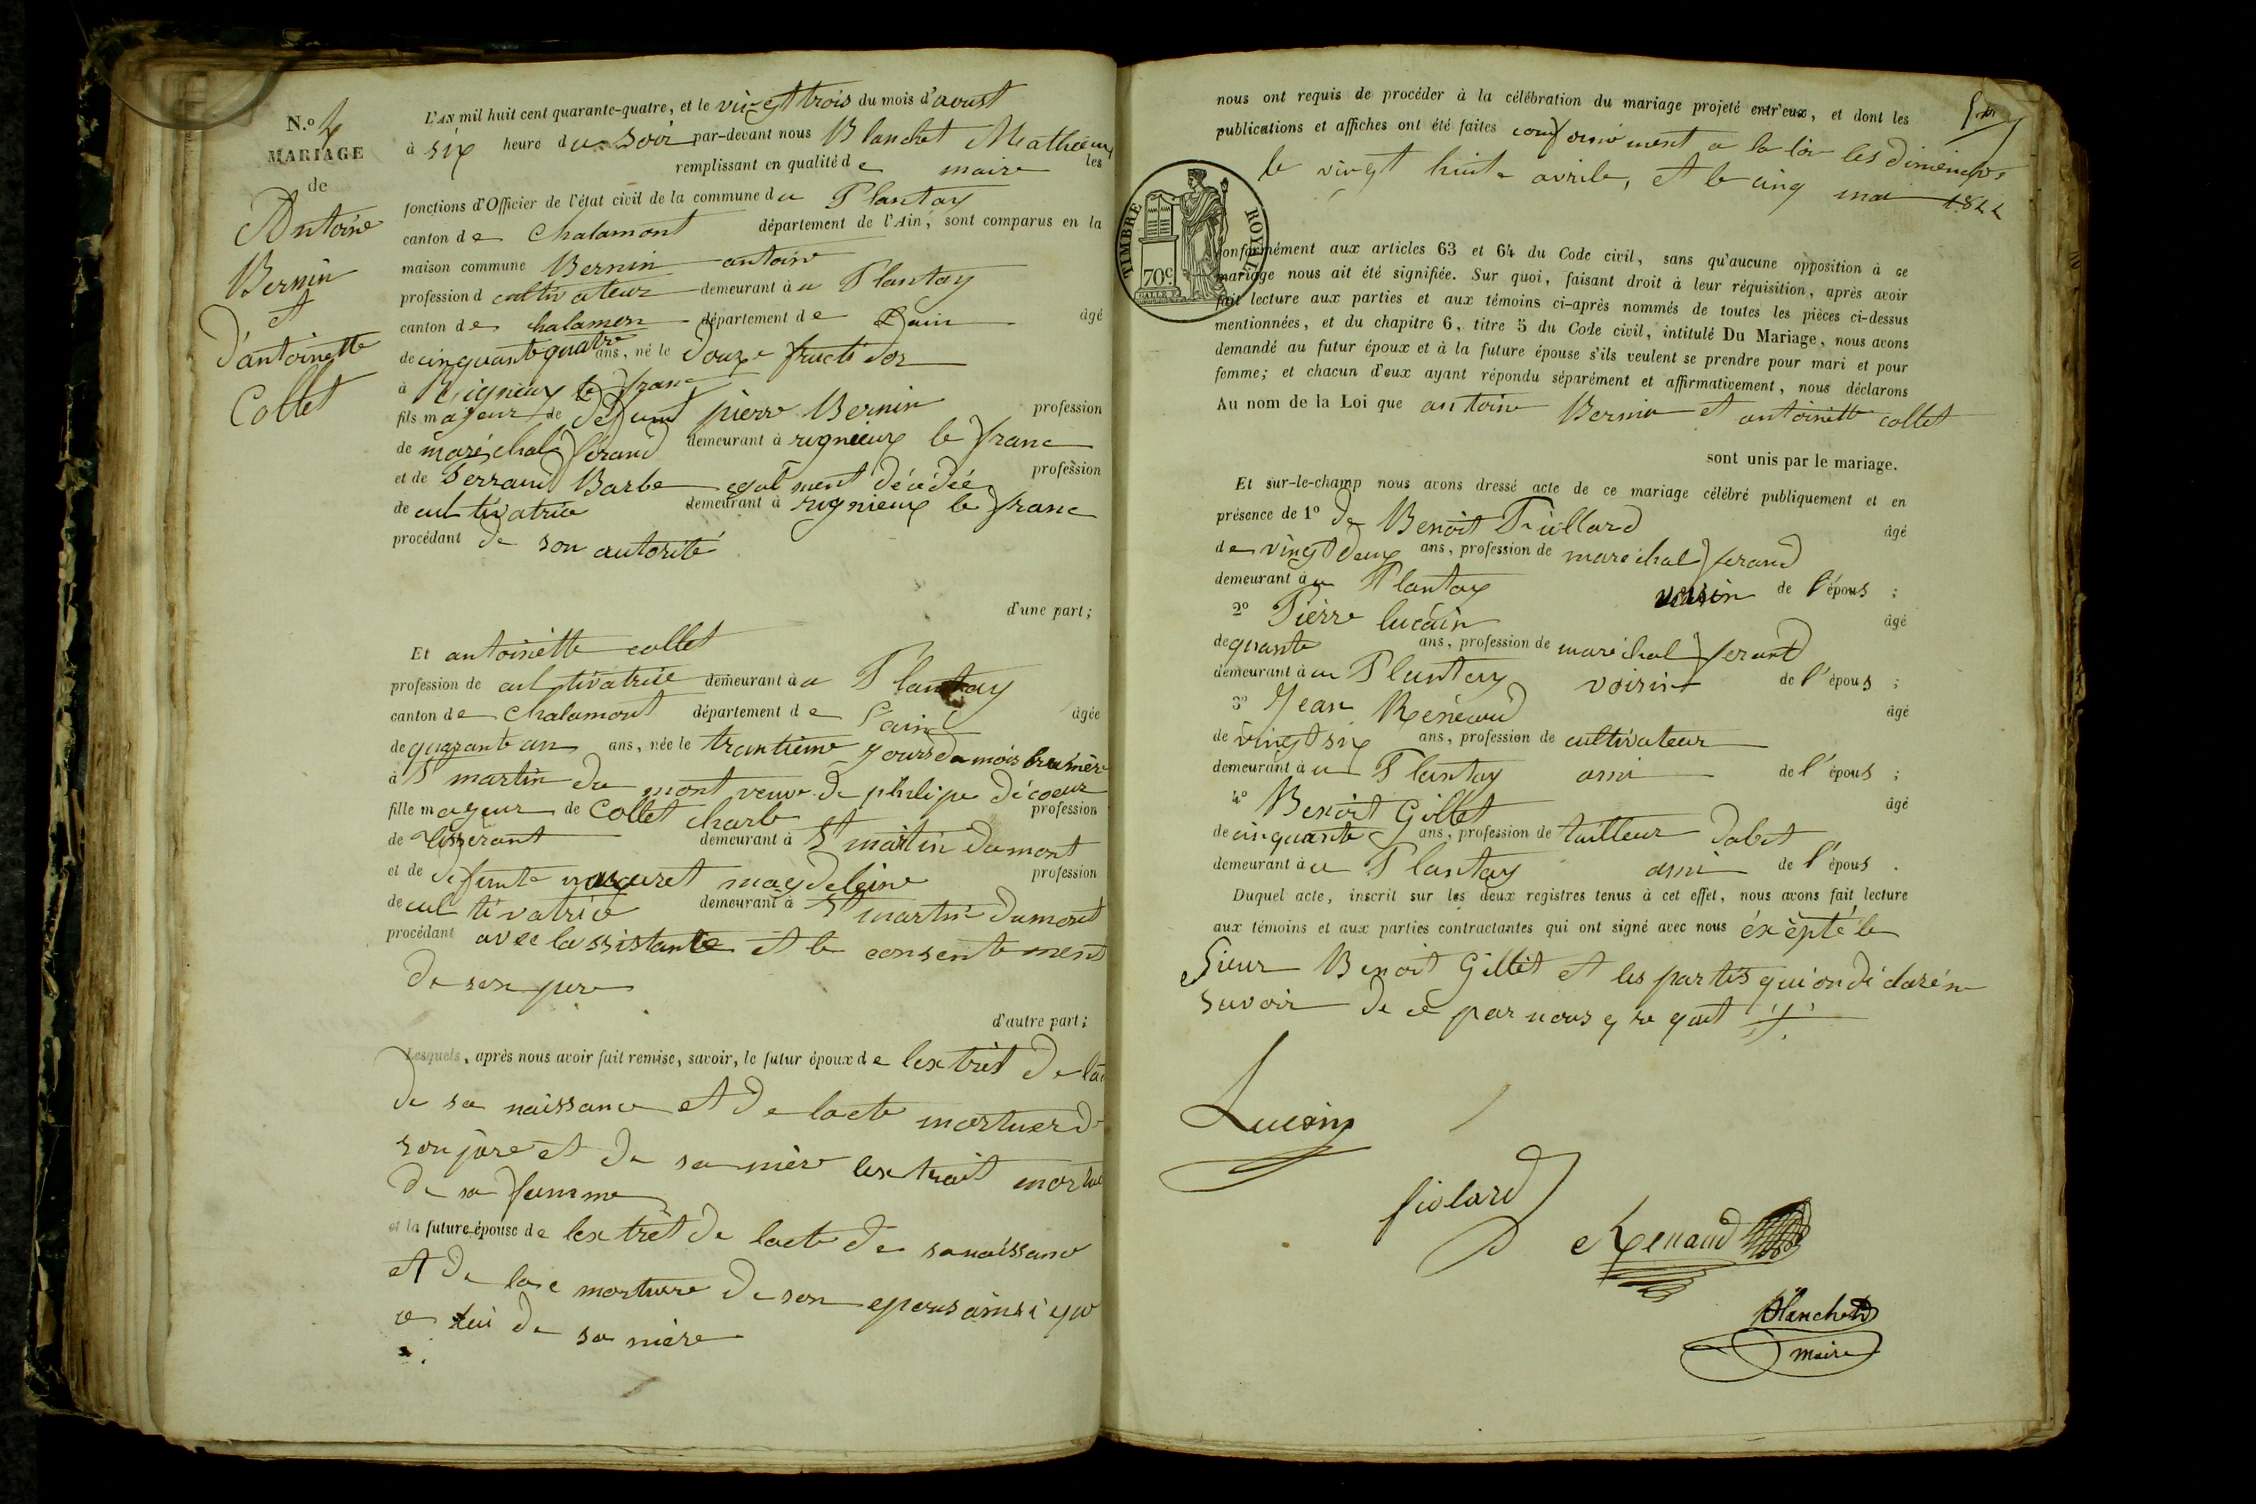 N.o 4
MARIAGE
de
Antoine
Bernin
et
d'antoinette
Collet
L'AN mil huit cent quarante-quatre, et le vingt trois du mois d'avust
à six heure du soir par-devant nous Blanchet Mathieux
remplissant en qualité de maire les
fonctions d'Officier de l'état civil de la commune du Plantay
canton de Chalamont département de l'Ain, sont comparus en la
maison commune Bernin antoine
profession d cultivateur demeurant à u Plantay
canton de chalamon département de Lain âgé
de cinquante quatre ans, né le douze fructidor
à Rigneux le franc
fils majeur de défunt pierre Bernin profession
de maréchal ferand demeurant à rigneux le franc
et de Ferrand Barbe egalment décédée profession
de cultivatrice demeurant à rignieux le franc
procédant de son autorité
d'une part;
Et antoinette collet
profession de cultivatrice demeurant à u Plantay
canton de Chalamont département de l'ain âgée
de quarante an ans, née le trantième jours du mois brumère
à St martin du mont veuve de philipe décoeur
fille majeur de Collet charle profession
de tisserant demeurant à St martin dumont
et de défunte magdeleine profession
de cultivatrice demeurant à St martin dumont
procédant avec lassistante et le consentement
de son pere
d'autre part;
Lesquels, après nous avoir fait remise, savoir, le futur époux de lextrèt de
de sa naissance et de lacte mortuer d
son père et de sa mère lextrait mortu
de sa famme
et la future épouse de lextrèt de lacte de sa naissance
et de mortuere de son epous ainsi que
ce lui de sa mère
nous ont requis de procéder à la célébration du mariage projeté entr'eux, et dont les
publications et affiches ont été faites conformément a la loi les dimenche
le vingt huit avrile, et le cinq mai 1844
TIMBRE ROYAL
70c.
conformément aux articles 63 et 64 du Code civil, sans qu'aucune opposition à ce
mariage nous ait été signifiée. Sur quoi, faisant droit à leur réquisition, après avoir
fait lecture aux parties et aux témoins ci-après nommés de toutes les pièces ci-dessus
mentionnées, et du chapitre 6, titre 5 du Code civil, intitulé Du Mariage, nous avons
demandé au futur époux et à la future épouse s'ils veulent se prendre pour mari et pour
femme; et chacun d'eux ayant répondu séparément et affirmativement, nous déclarons
Au nom de la Loi que antoine Bernin et antoinette collet
sont unis par le mariage.
Et sur-le-champ nous avons dressé acte de ce mariage célébré publiquement et en
présence de 1o de Benoit Fiollard âgé
de vingt deux ans, profession de maréchal ferand
demeurant à u Plantay voisin de l'épous ;
2o Pierre lucain âgé
de quarante ans, profession de maréchal ferant
demeurant à u Plantay voisin de l'épous ;
3o Jean Renéaud âgé
de vingt six ans, profession de cultivateur
demeurant à u Plantay ami de l'épous ;
4o Benoit Gillet âgé
de cinquante ans, profession de tailleur dabit
demeurant à u Plantay ami de l'épous .
Duquel acte, inscrit sur les deux registres tenus à cet effet, nous avons fait lecture
aux témoins et aux parties contractantes qui ont signé avec nous éxépté le
Sieur Benoit Gillit et les partis qui on déclaré ne
savoir de ce par nous
Lucain
fiolard
Renaud
Blanchet
maire